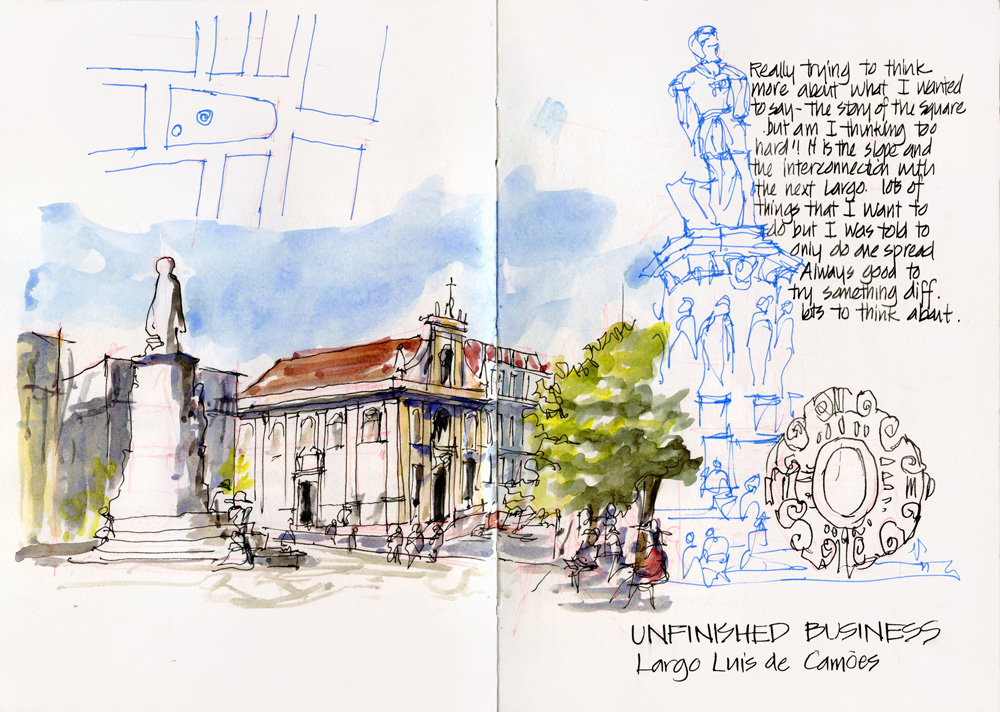 Really trying to think
more about what I wanted
to say - the story of the square
but am I thinking too
hard!! It is the slope and
the interconnection with
the next Largo. lots of
things that I want to
do but I was told to
only do one spread
Always good to
try something diff.
lots to think about.
UNFINISHED BUSINESS
Largo Luis de Camões